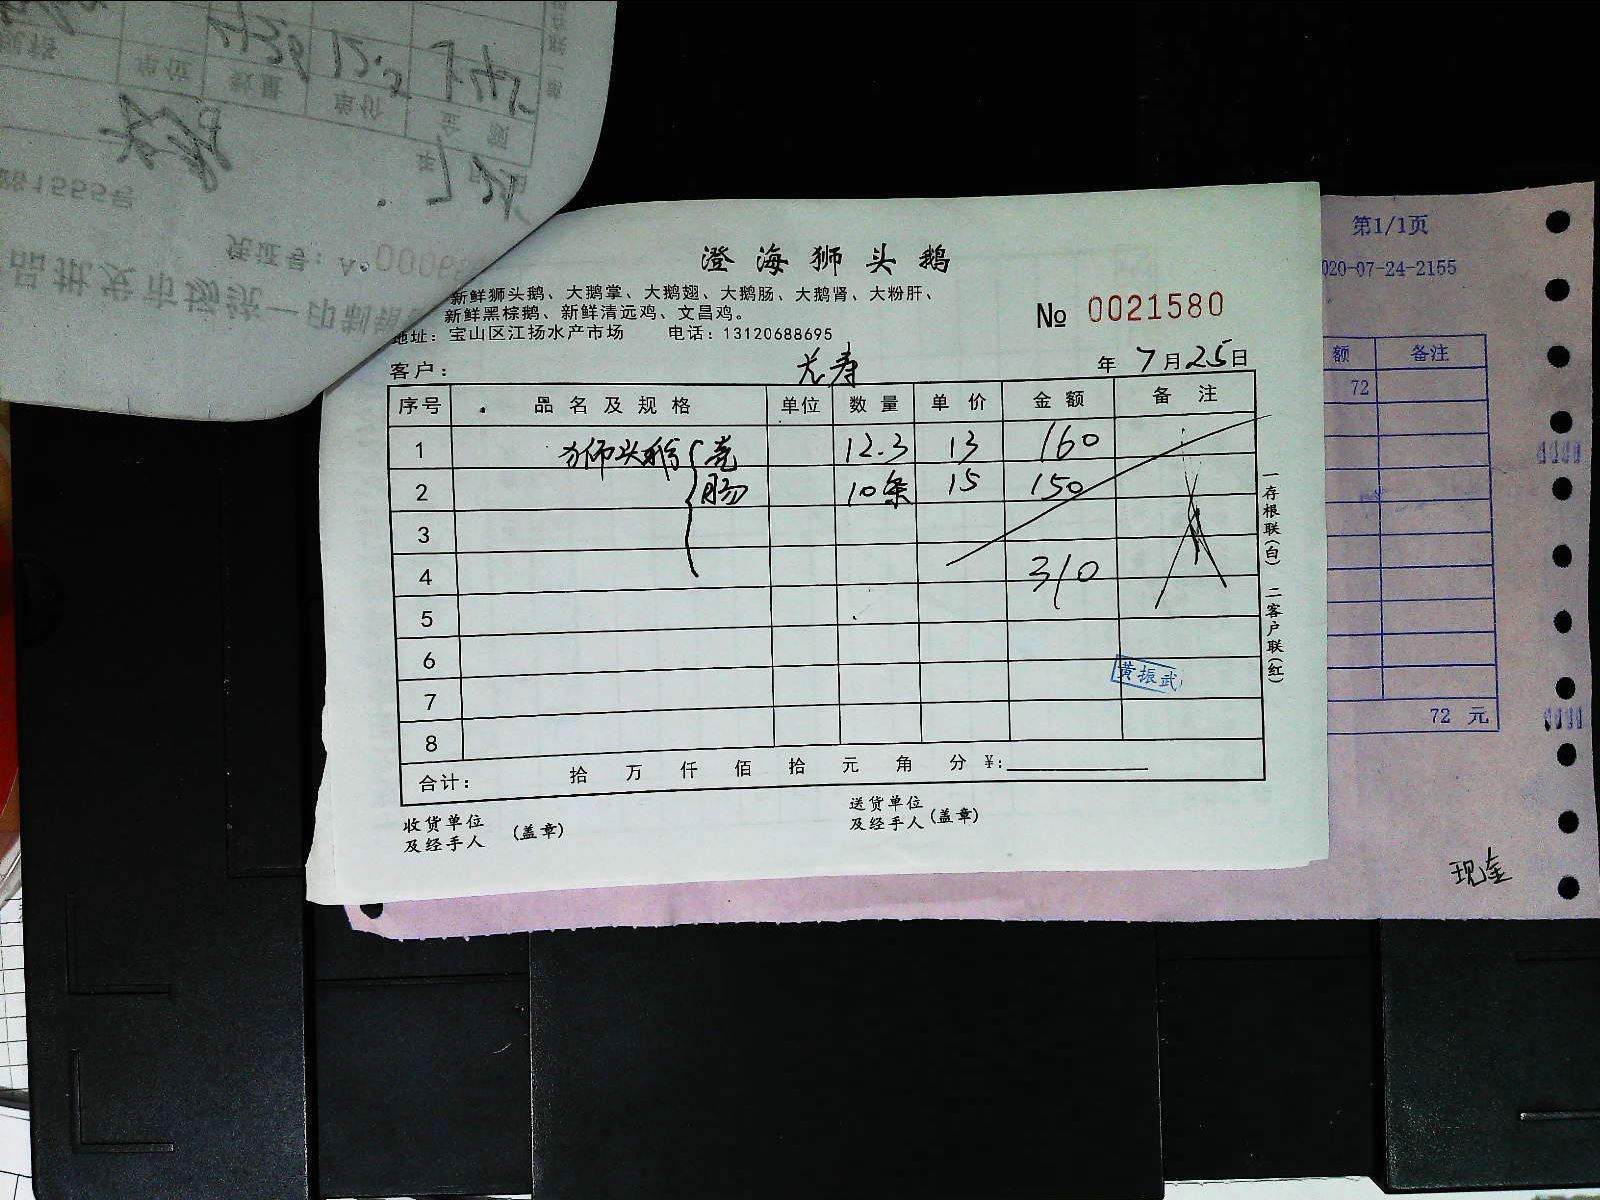 澄海狮头鹅
新鲜狮头鹅、大鹅掌、大鹅翅、大鹅肠、大鹅肾、大粉肝、
新鲜黑棕鹅、新鲜清远鸡、文昌鸡。
地址：宝山区江扬水产市场 电话：13120688695
№ 0021580
客户： 年 7 月 25 日
序号 品名及规格 单位 数量 单价 金额 备注
1 狮头鹅 壳 12.3 13 160
2 肠 10条 15 150
3
4 310
5
6
黄振武
7
8
合计： 拾 万 仟 佰 拾 元 角 分 ¥:
收货单位
及经手人 (盖章)
送货单位
及经手人 (盖章)
一存根联(白) 二客户联(红)
第1/1页
020-07-24-2155
额 备注
72
72 元
现金
品批发市场统一印制
凭证号：
路1555号
年 月 日
规格 单位 数量 单价 金额